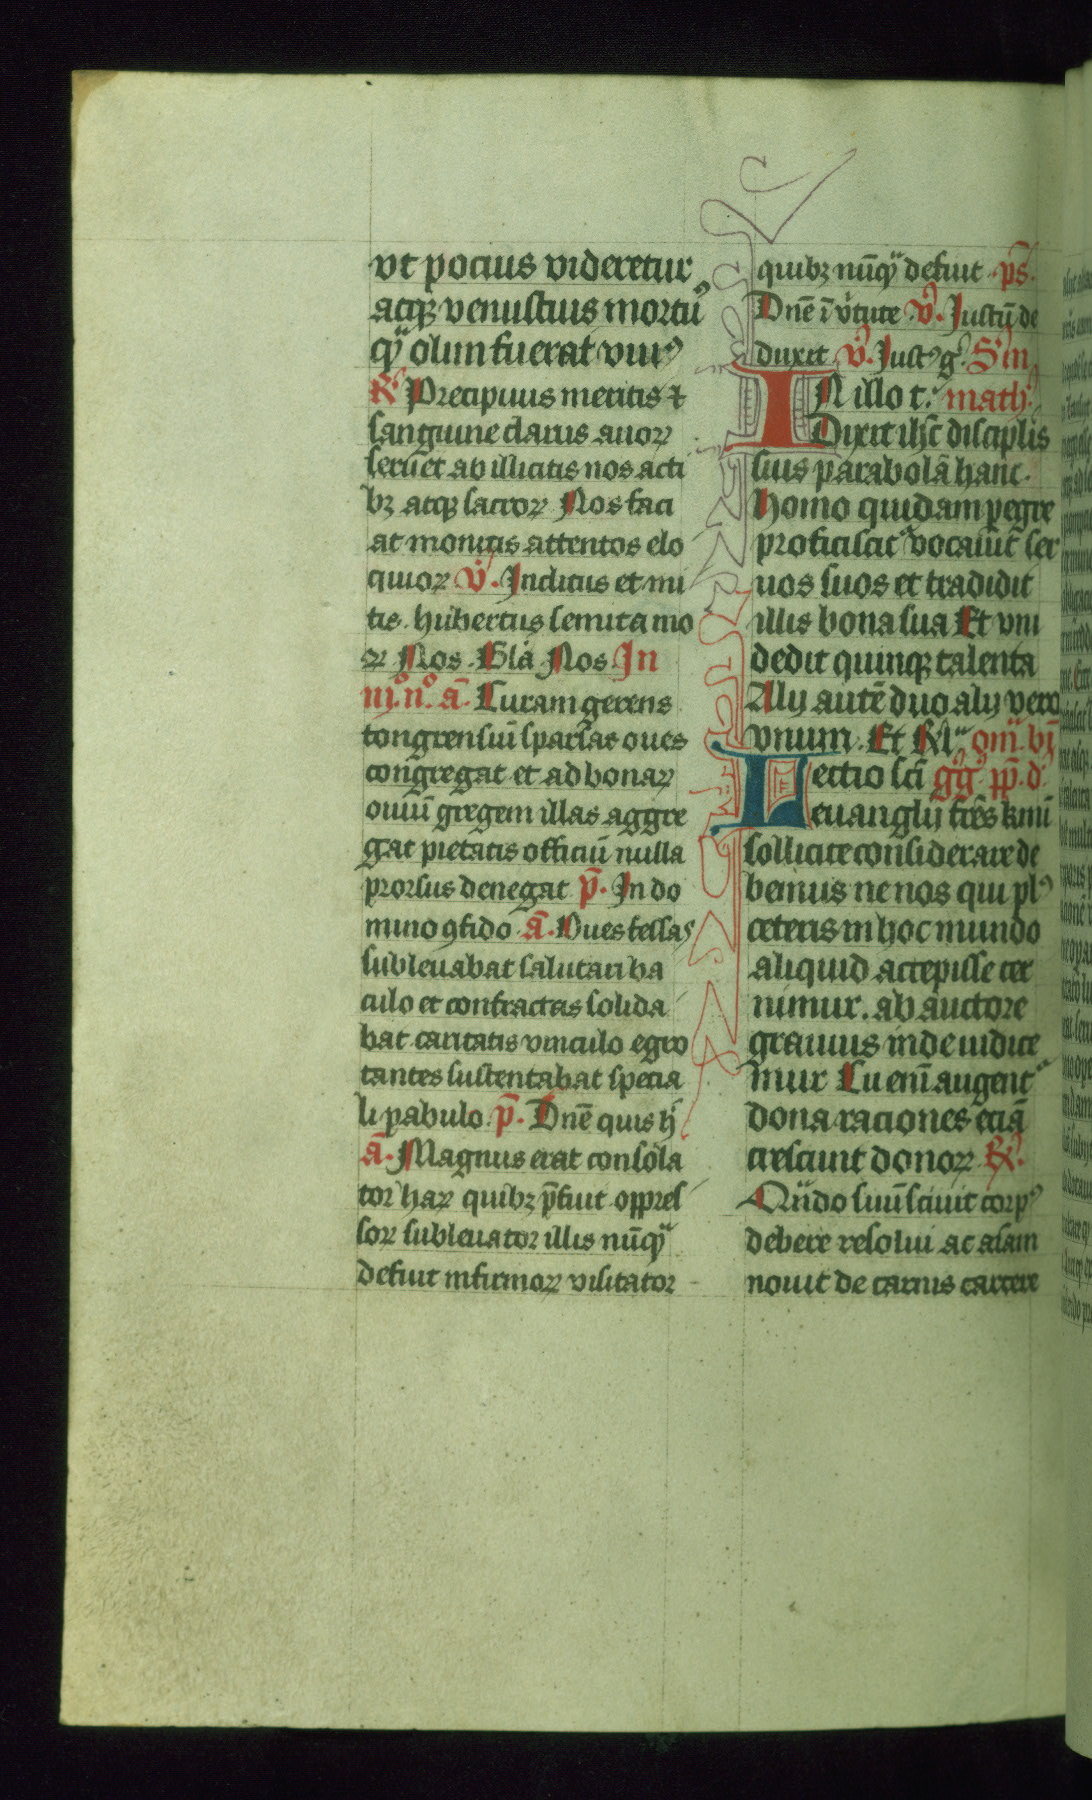 vt pocius videretur
atqꝫ venustius mortuꝰ
qͣ olim fuerat viuꝰ
R̕ Precipuus meritis ⁊
sanguine clarus auoꝝ
seruet ab illicitis nos acti
bꝫ atqꝫ sacroꝝ Nos faci
at monitis attentos elo
quioꝝ v̕. Inclitus et mi
tis hubertus semita mo
ꝝ Nos. Gl̄a Nos In
iijͦ. nͦ. a̅. Curam gerens
tongrensiū sparsas oues
congregat et ad bonaꝝ
ouiū gregem illas aggre
gat pietatis officiū nulla
prorsus denegat p̅. In do
mino ꝯfido a̅. Oues fessas
subleuabat salutari ba
culo et confractas solida
bat caritatis vinculo egro
tantes sustentabat specia
li pabulo. p̅. Dn̄e quis h̕
a̅. Magnus erat consola
tor haꝝ quibꝫ p̄fiut oppres
soꝝ subleuator illis nūqͣ
defuit infirmoꝝ visitator
quibꝫ nūqͣ defuit ps̄.
Dn̄e ī v̕tute v̕. Iustū de
duxit v̕. Iustꝰ g̕. S̕m
IN illo t. math̕
Dixit ih̄c disciplis
suis parabolā hanc.
Homo quidam pegre
proficiscit᷑ vocauit ser
uos suos et tradidit
illis bona sua Et vni
dedit quinqꝫ talenta
Alij autē duo alij vero
vnum. Et Rlͣ om̄. bī
Lectio sc̄i gg̕ pp̄. d̕
euangelij fr̄es kmī
sollicite considerare de
bemus ne nos qui plꝰ
ceteris in hoc mundo
aliquid accepisse cer
nimur. ab auctore
grauius inde iudice
mur Cu enī augent᷑
dona raciones eciā
crescunt donoꝝ R̕.
Qn̄do suū sciuit corpꝰ
debere resolui ac asam
nouit de carnis carcere